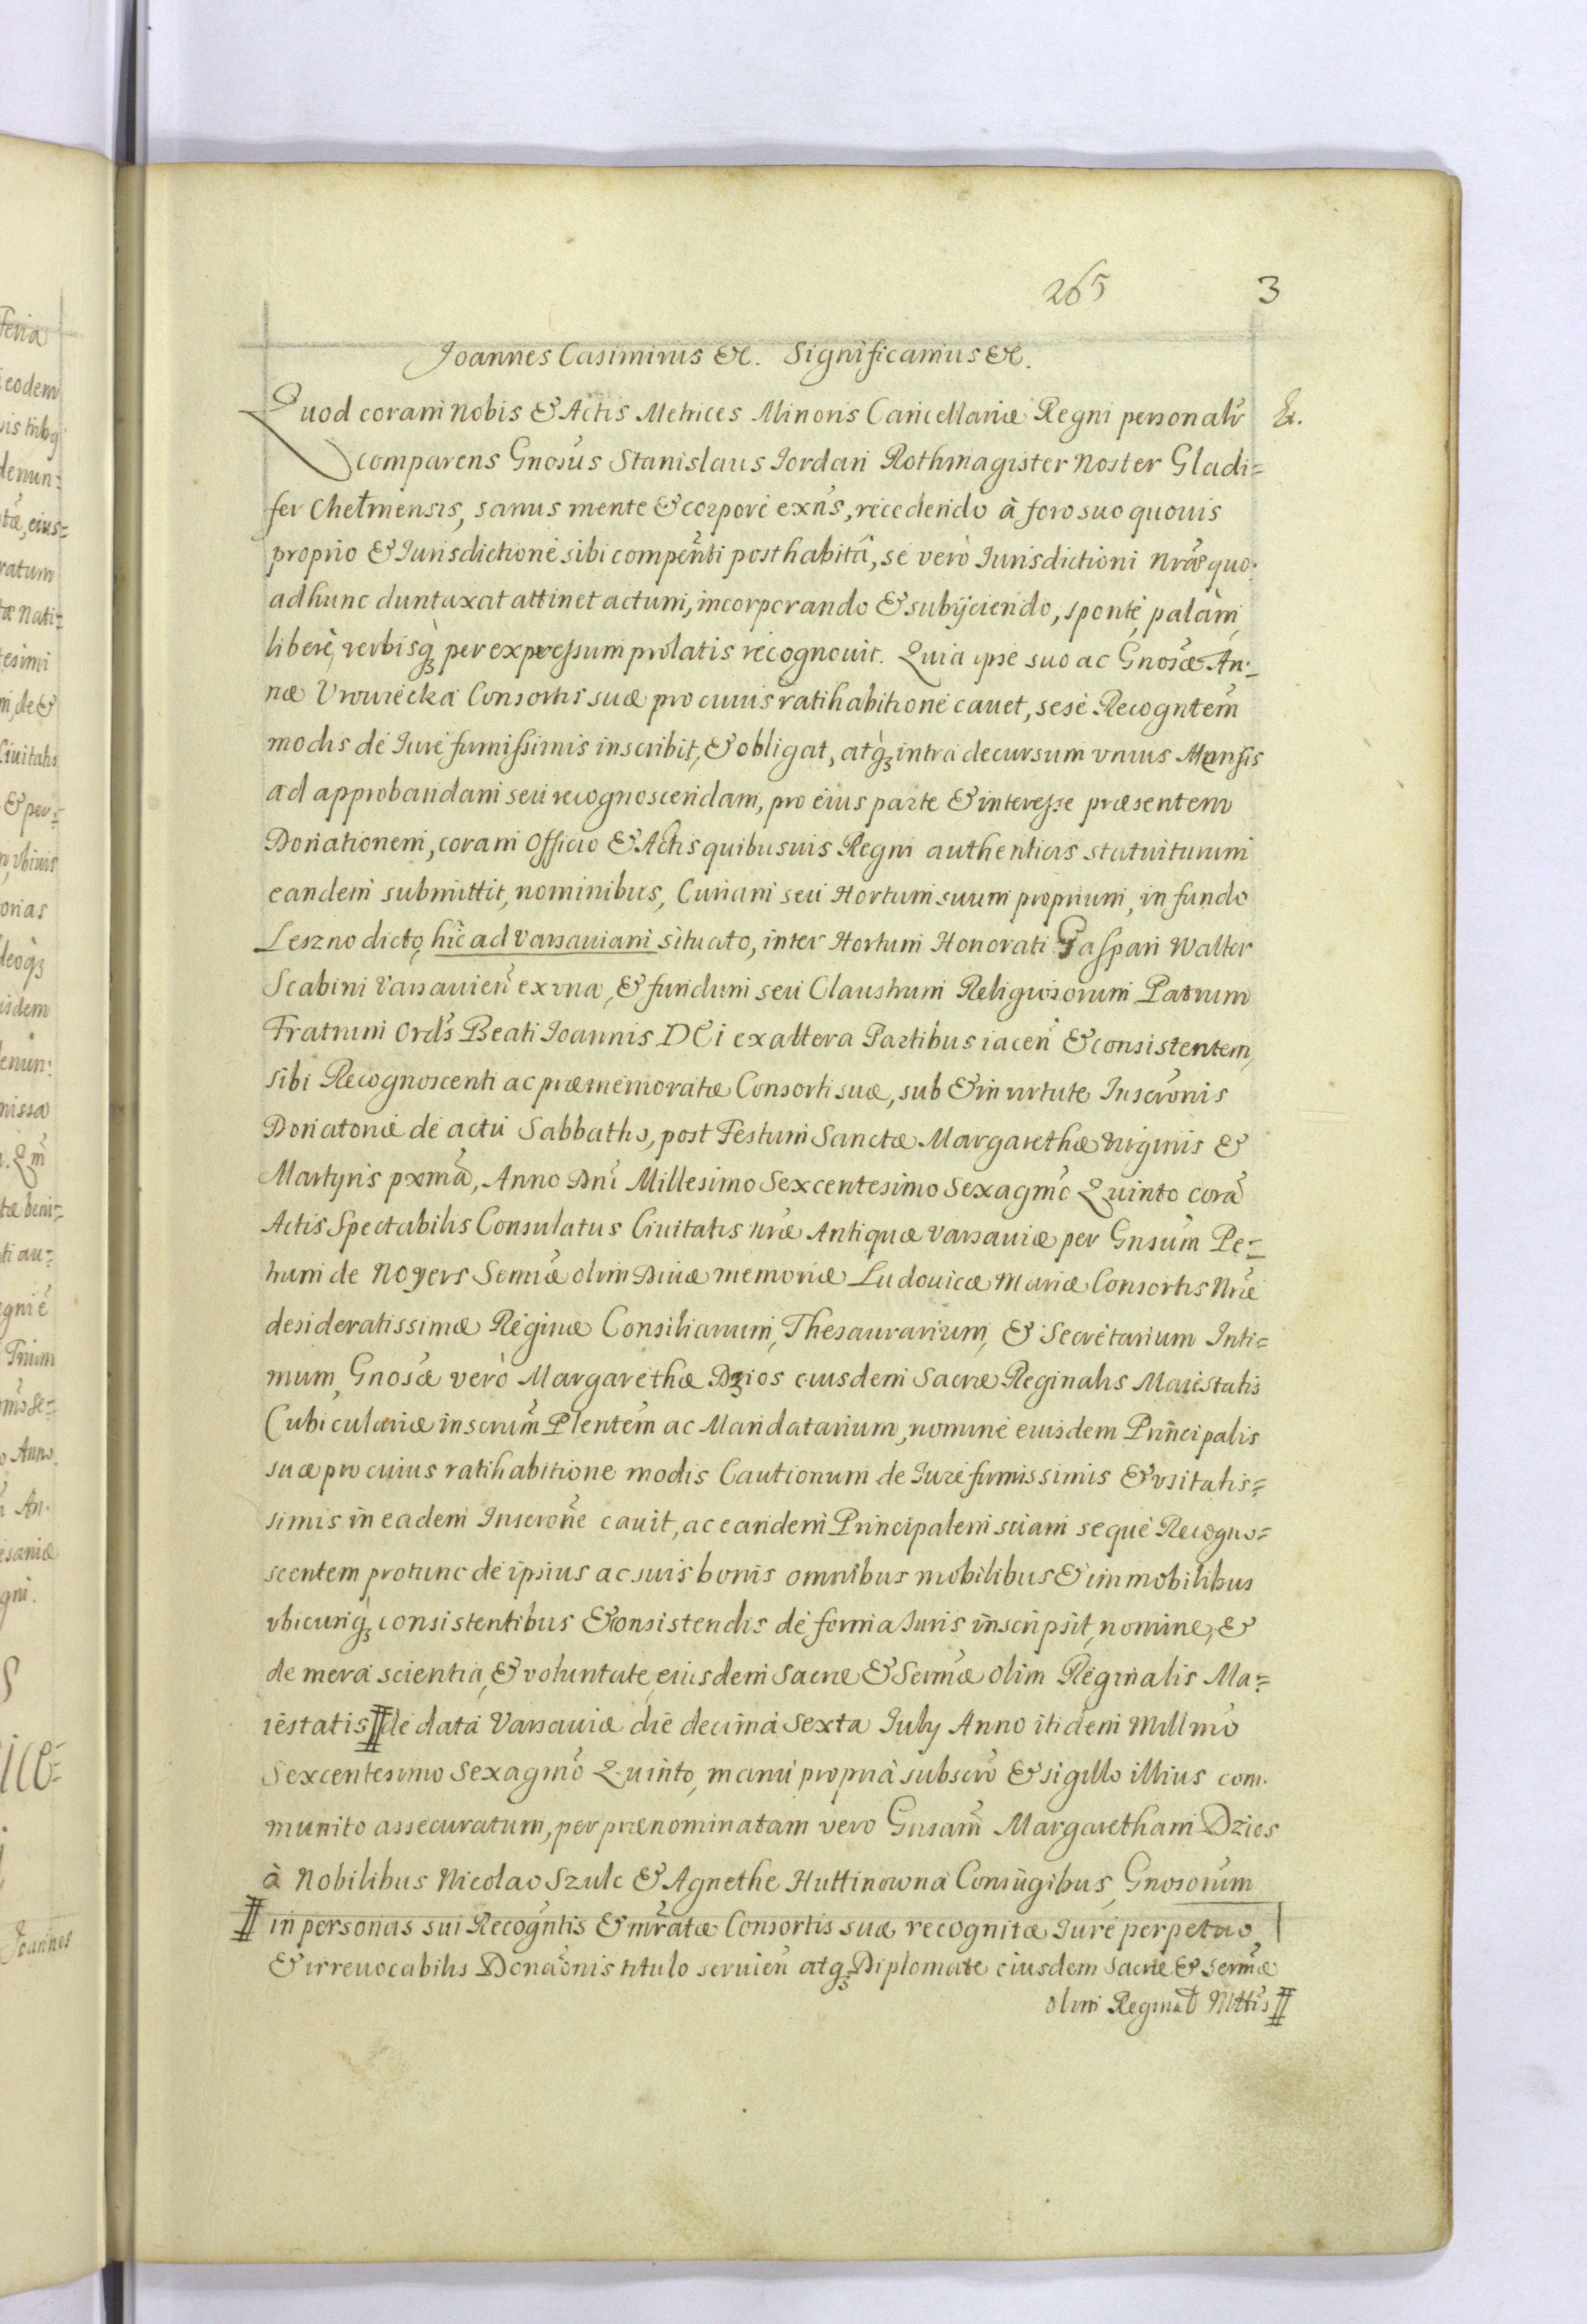 265 3
Joannes Casimirus &c. Significamus &c.
Quod coram nobis & Actis Metrices Minoris Cancellariæ Regni personalr &.
comparens Gnosus Stanislaus Jordan Rothmagister Noster Gladi=
fer Chełmensis, sanus mente & corpore exns, recedendo à foro suo quouis
proprio & Iurisdictione sibi compenti posthabitâ, se verò Iurisdictioni Nræ quo:
ad hunc duntaxat attinet actum, incorporando & subijciendo, sponte, palàm,
liberè, verbisq́ꝫ per expressum prolatis recognouit. Quia ipse suo ac Gnosæ An:
næ Vrowiecka Consortis suæ pro cuius ratihabitione cauet, sese Recogntem
modis de Iure firmissimis inscribit, & obligat, atq́ꝫ intra decursum vnius Mensis
ad approbandam seu recognoscendam, pro eius parte & interesse præsentem
Donationem, coram Officio & Actis quibusuis Regni authenticis statuiturum
eandem submittit, nominibus, Curiam seu Hortum suum proprium, in fundo
Leszno dicto, hîc ad Varsauiam situato, inter Hortum Honorati Gaspari Walter
Scabini Varsauien̄ ex vna, & fundum seu Claustrum Religiosorum Patrum
Fratrum Ordˢ Beati Joannis DEi ex altera Partibus iacen̄ & consistentem,
sibi Recognoscenti ac præmemoratæ Consorti suæ, sub & in virtute Inscronis
Donatoriæ de actu Sabbatho, post Festum Sanctæ Margarethæ Virginis &
Martyris pxmâ, Anno Dni Millesimo Sexcentesimo Sexagmo Quinto corã
Actis Spectabilis Consulatus Ciuitatis nræ Antiquæ Varsauiæ per Gnsum Pe=
trum de Noyers Sermæ olim Diuæ memoriæ Ludouicæ Mariæ Consortis Nræ
desideratissimæ Reginæ Consiliarium, Thesaurarium, & Secretarium Inti=
mum, Gnosæ verò Margarethæ Dzios eiusdem Sacræ Reginalis Maiestatis
Cubiculariæ inscrum Plentem ac Mandatarium, nomine eiusdem Principalis
suæ pro cuius ratihabitione modis Cautionum de Iure firmissimis & vsitatis=
simis in eadem Inscrone cauit, ac eandem Principalem etiam seque Recogno=
scentem pro tunc de ipsius ac suis bonis omnibus mobilibus & immobilibus
vbicunq́ꝫ consistentibus & consistendis de forma Iuris inscripsit, nomine, &
de mera scientia, & voluntate, eiusdem Sacræ & Sermæ olim Reginalis Ma=
iestatis ǂ de data Varsauiæ die decima sexta July Anno itidem Millmo
Sexcentesimo Sexagmo Quinto, manu propria subscro & sigillo illius com.
munito assecuratum, per prænominatam vero Gnsam Margaretham Dzios
à Nobilibus Nicolao Szulc & Agnethe Huttinowna Coniugibus, Gnosorum
ǂ in personas sui Recogntis & mratæ Consortis suæ recognitæ Iure perpetuo
& irreuocabilis Donaonis titulo seruien̄ atq́ꝫ Diplomate eiusdem Sacræ & Sermæ
olim Reginał Mttis ǂ